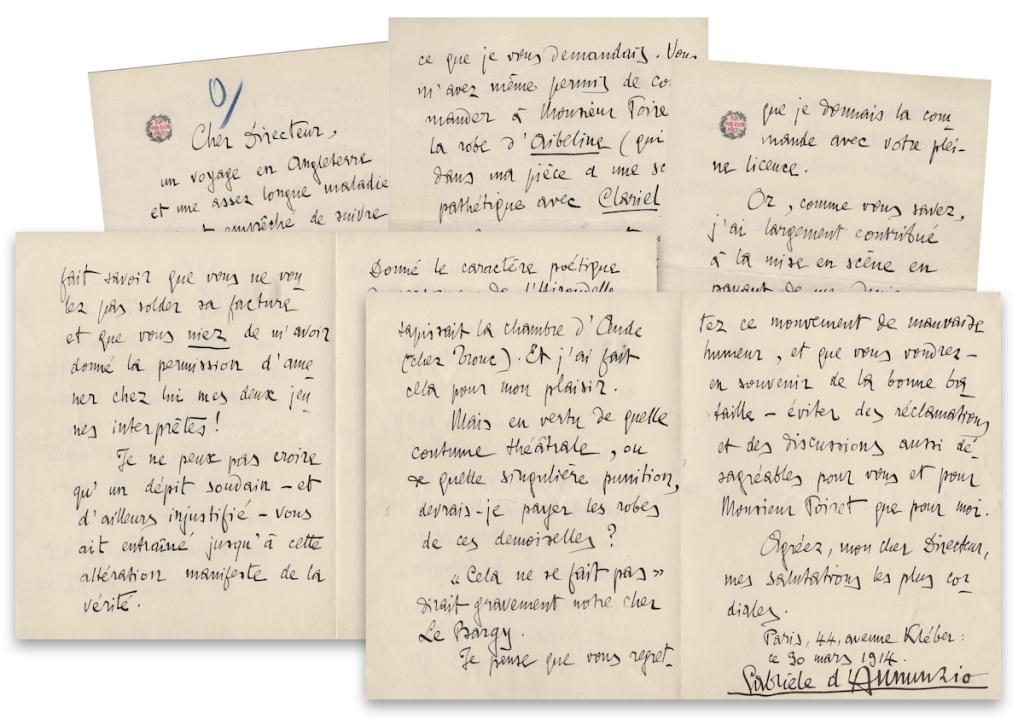 0/
Cher Directeur,
un voyage en Angleterre
et une assez longue maladie
empêché de suivre
ce que je vous demandais. Vous
m'avez même permis de co
mander à Monsieur Poire
la robe d'Aibeline (qui
dans ma pièce a une sc
pathétique avec Clariel
que je donnais la com-
mande avec votre plei-
ne licence.
Or, comme vous savez,
j'ai largement contribué
à la mise en scène en
fait savoir que vous ne vou
lez pas solder sa facture
et que vous niez de m'avoir
donné la permission d'ame
ner chez lui mes deux jeu
nes interprêtes!
Je ne peux pas croire
qu'un dépit soudain – et
d'ailleurs injustifié – vous
ait entraîné jusqu'à cette
altération manifeste de la
vérité.
Donné le caractère poétique
de l'Hirondelle
tapissait la chambre d'Aude
(chez Bronc). Et j'ai fait
cela pour mon plaisir.
Mais en vertu de quelle
coutume théâtrale, ou
de quelle singulière punition,
devrais-je payer les robes
de ces demoiselles?
« Cela ne se fait pas »
dirait gravement notre cher
Le Bargy.
Je pense que vous regret-
tez ce mouvement de mauvaise
humeur, et que vous voudrez –
en souvenir de la bonne ba
taille – éviter des réclamations
et des discussions aussi dé-
sagréables pour vous et pour
Monsieur Poiret que pour moi.
Agréez, mon cher Directeur,
mes salutations les plus cor
diales.
Paris, 44, avenue Kléber:
ce 30 mars 1914.
Gabriele d'Annunzio